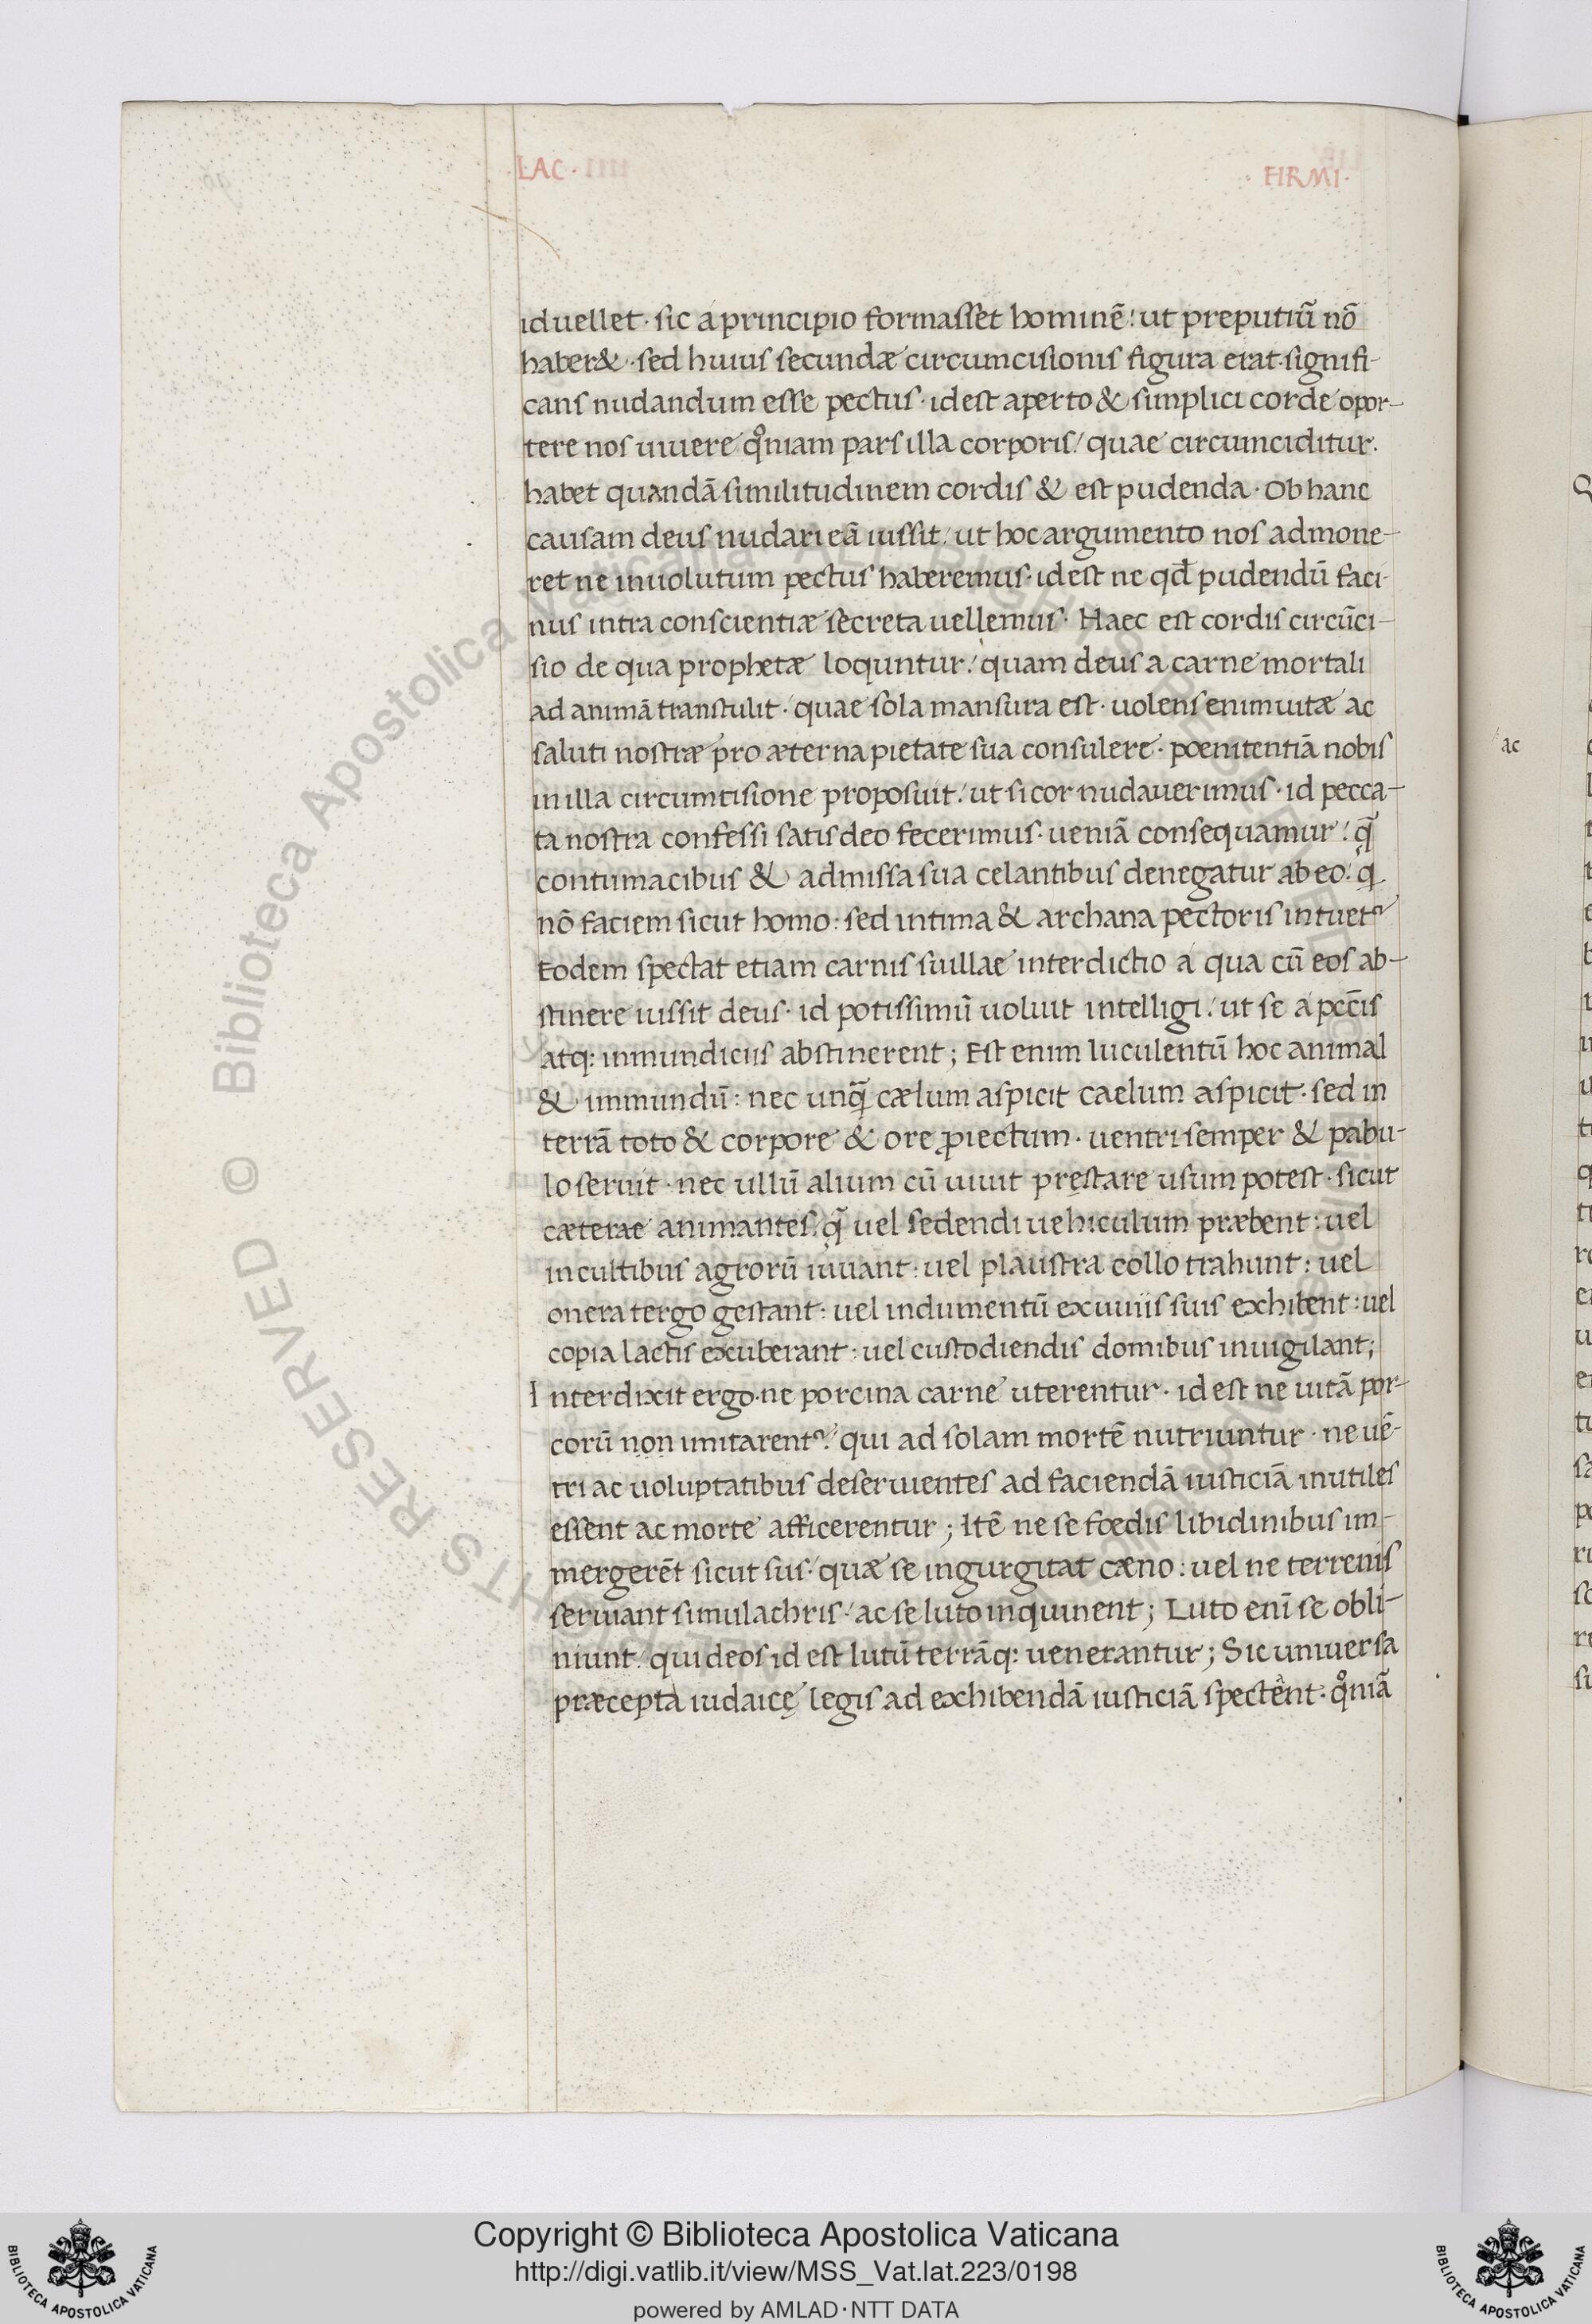 LAC· FIRMI·
id uellet· sic a principio formasset hominē! ut preputiū nō
haber&· sed huius secundæ circumcisionis figura erat· signifi-
cans nudandum esse pectus· id est aperto & simplici corde opor-
tere nos uiuere qm̊niam pars illa corporis! quae circumciditur·
habet quandā similitudinem cordis & est pudenda· Ob hanc
causam deus nudari eā iussit! ut hoc argumento nos admone-
ret ne inuolutum pectus haberemus· id est ne qd̄ pudendū faci-
nus intra conscientiæ secreta uellemus· Haec est cordis circūci-
sio de qua prophetæ loquntur! quam deus a carne mortali
ad animā transtulit· quae sola mansura est· uolens enim uitæ ac
saluti nostræ pro æterna pietate sua consulere· poenitentiā nobis
in illa circumcisione proposuit! ut si cor nudauerimus· id pecca-
ta nostra confessi satis deo fecerimus· ueniā consequamur! q̄
contumacibus & admissa sua celantibus denegatur ab eo! q
nō faciem sicut homo: sed intima & archana pectoris intuet᷑
Eodem spectat etiam carnis suillae interdictio a qua cū eos ab-
stinere iussit deus· id potissimū uoluit intelligi! ut se a pccīs
atq: inmundiciis abstinerent; Est enim luculentū hoc animal
& immundū: nec unq̄ cælum aspicit caelum aspicit· sed in
terrā toto & corpore & ore ꝓiectum· uentri semper & pabu-
lo seruit· nec ullū alium cū uiuit pręstare usum potest· sicut
cæterae animantes! q̄ uel sedendi uehiculum præbent: uel
in cultibus agrorū iuuant: uel plaustra collo trahunt: uel
onera tergo gestant: uel indumentū exuuiis suis exhibent: uel
copia lactis exuberant: uel custodiendis domibus inuigilant;
Interdixit ergo· ne porcina carne uterentur· id est ne uitā por-
corū non imitarent᷑! qui ad solam mortē nutriuntur· ne uē-
tri ac uoluptatibus deseruientes ad faciendā iusticiā inutiles
essent ac morte afficerentur; Itē ne se foedis libidinibus im-
mergerēt sicut sus· quæ se ingurgitat cæno: uel ne terrenis
seruiant simulachris! ac se luto inquinent; Luto enī se obli-
niunt! qui deos id est lutū terrāq: uenerantur; Sic uniuersa
præcepta iudaicę legis ad exhibendā iusticiā spectent· q̊niā
ac
Copyright © Biblioteca Apostolica Vaticana
http://digi.vatlib.it/view/MSS_Vat.lat.223/0198
powered by AMLAD·NTT DATA
BIBLIOTECA APOSTOLICA VATICANA
BIBLIOTECA APOSTOLICA VATICANA